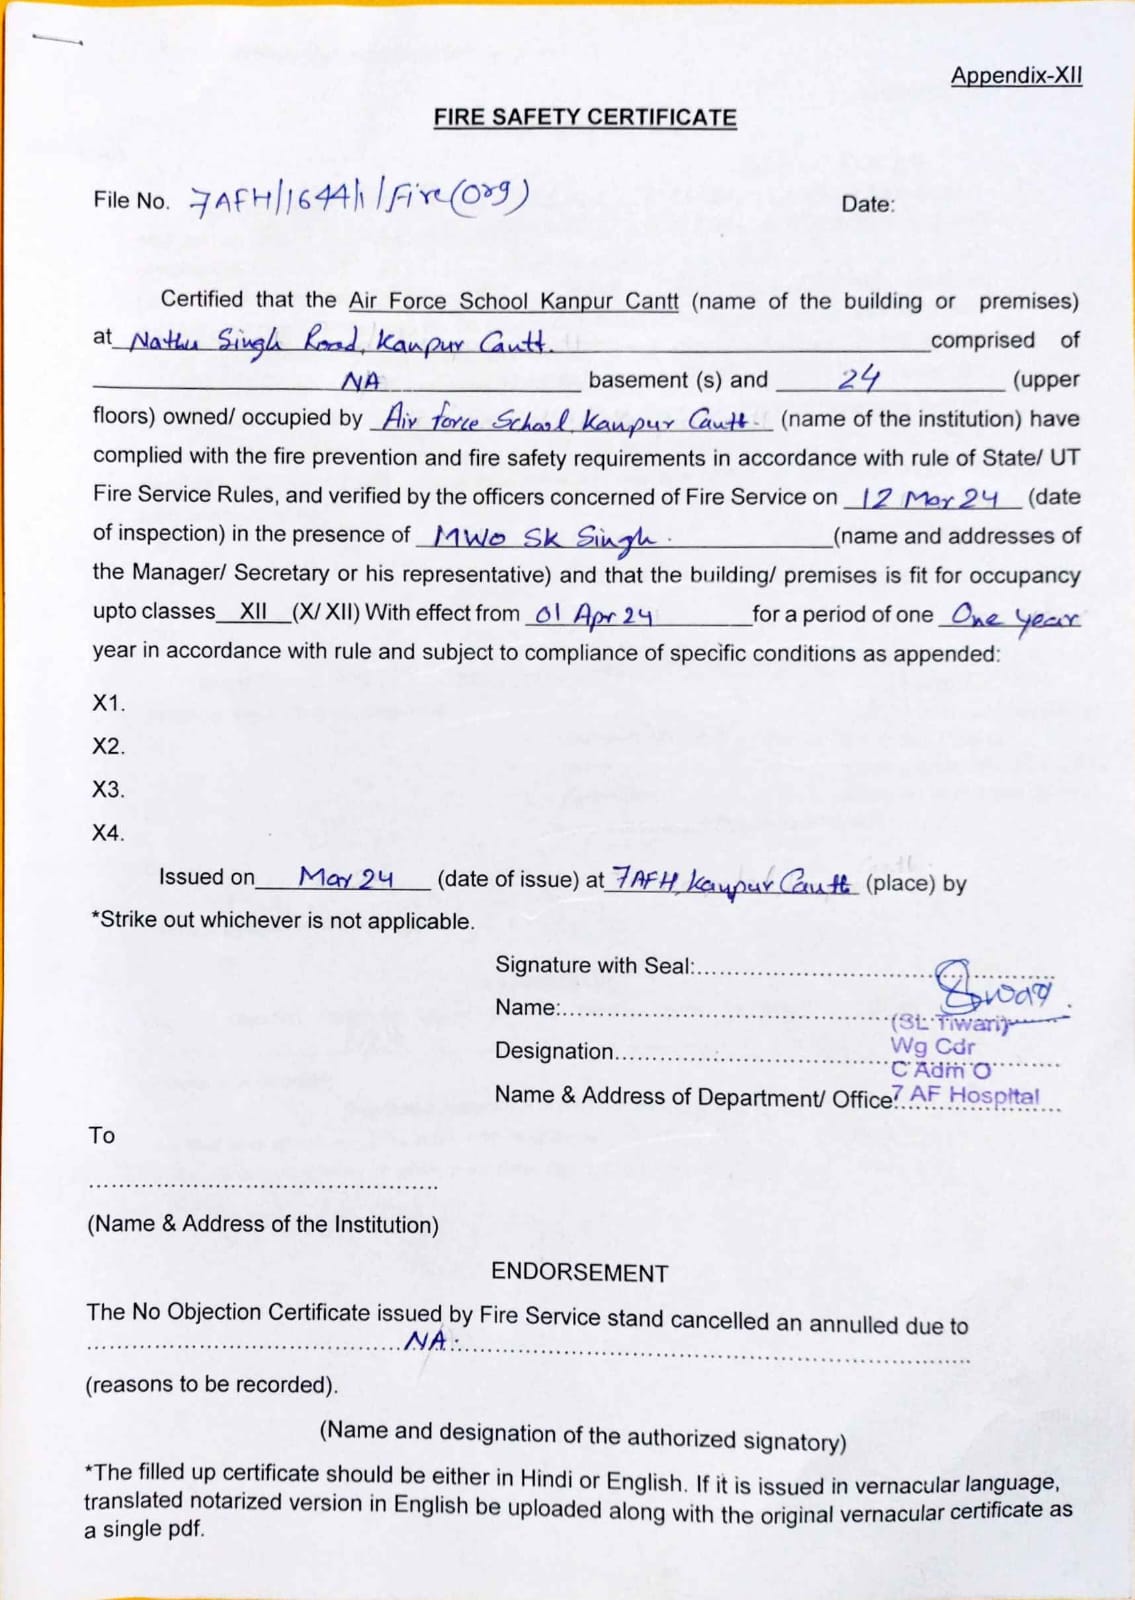 Appendix-XII
FIRE SAFETY CERTIFICATE
File No. 7AFH/1644/1/Fire(Org)
Date:
Certified that the Air Force School Kanpur Cantt (name of the building or premises)
at Nathu Singh Road, Kanpur Cantt. comprised of
NA basement (s) and 24 (upper
floors) owned/ occupied by Air force School, Kanpur Cantt. (name of the institution) have
complied with the fire prevention and fire safety requirements in accordance with rule of State/ UT
Fire Service Rules, and verified by the officers concerned of Fire Service on 12 Mar 24 (date
of inspection) in the presence of MWO SK Singh. (name and addresses of
the Manager/ Secretary or his representative) and that the building/ premises is fit for occupancy
upto classes XII (X/ XII) With effect from 01 Apr 24 for a period of one One year
year in accordance with rule and subject to compliance of specific conditions as appended:
X1.
X2.
X3.
X4.
Issued on Mar 24 (date of issue) at 7AFH, Kanpur Cantt (place) by
*Strike out whichever is not applicable.
Signature with Seal:
Name:
(SL Tiwari)
Wg Cdr
Designation
C Adm O
Name & Address of Department/ Office: 7 AF Hospital
To
(Name & Address of the Institution)
ENDORSEMENT
The No Objection Certificate issued by Fire Service stand cancelled an annulled due to
NA.
(reasons to be recorded).
(Name and designation of the authorized signatory)
*The filled up certificate should be either in Hindi or English. If it is issued in vernacular language,
translated notarized version in English be uploaded along with the original vernacular certificate as
a single pdf.